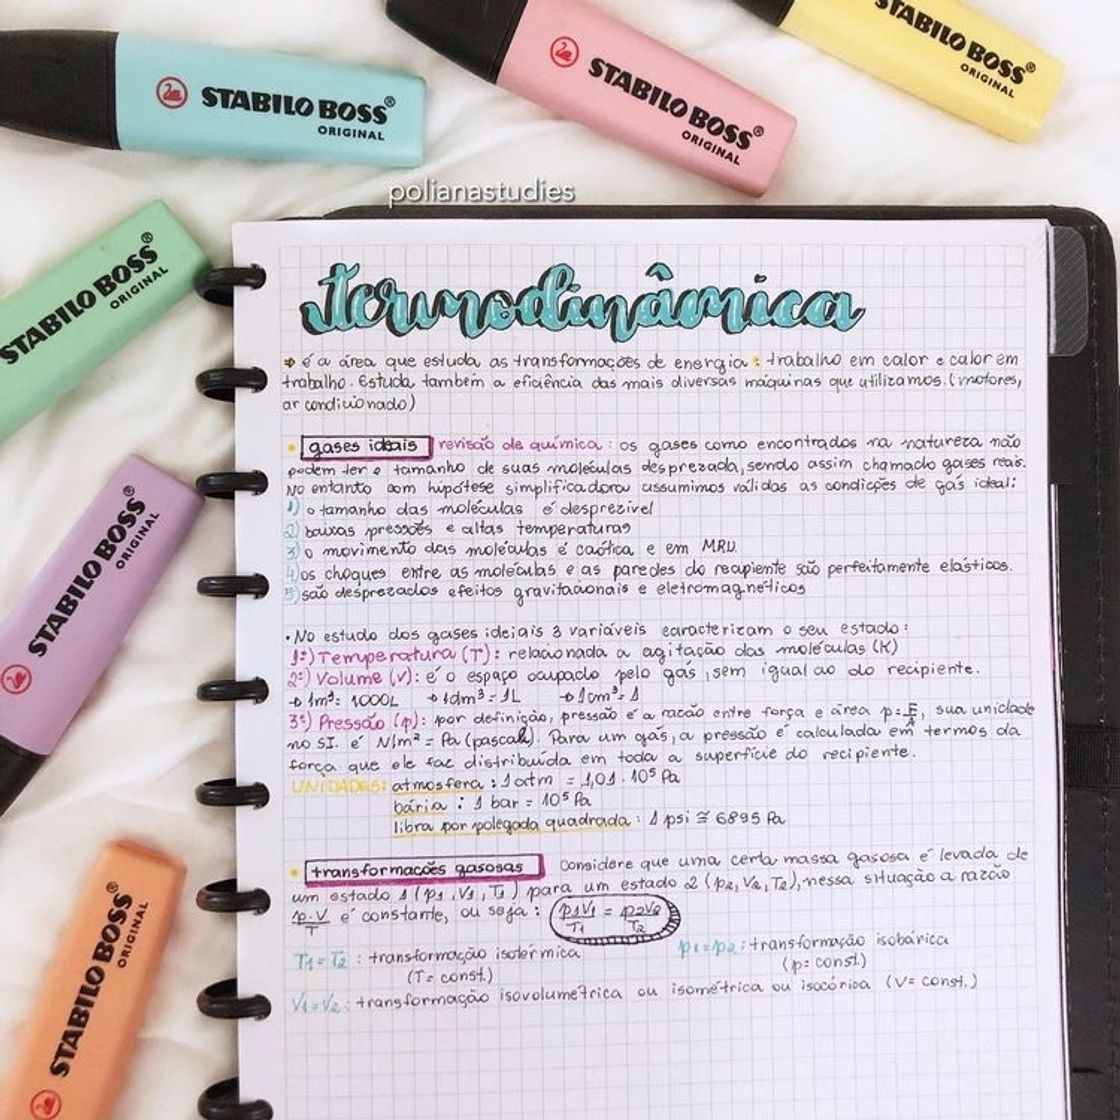 STABILO BOSS®
ORIGINAL
STABILO BOSS®
ORIGINAL
STABILO BOSS®
ORIGINAL
polianastudies
STABILO BOSS®
ORIGINAL
STABILO BOSS®
ORIGINAL
STABILO BOSS®
ORIGINAL
termodinâmica
⇒ é a área que estuda as transformações de energia: trabalho em calor e calor em
trabalho. Estuda também a eficiência das mais diversas máquinas que utilizamos. (motores,
ar condicionado)
• gases ideais revisão de química: os gases como encontrados na natureza não
podem ter o tamanho de suas moléculas desprezada, sendo assim chamado gases reais.
No entanto com hipótese simplificadora assumimos válidas as condições de gás ideal:
1) o tamanho das moléculas é desprezível
2) baixas pressões e altas temperaturas
3) o movimento das moléculas é caótica e em MRU.
4) os choques entre as moléculas e as paredes do recipiente são perfeitamente elásticos.
5) são desprezados efeitos gravitacionais e eletromagnéticos
• No estudo dos gases ideiais 3 variáveis caracterizam o seu estado:
1º) Temperatura (T): relacionada a agitação das moléculas (K)
2º) Volume (V): é o espaço ocupado pelo gás, sem igual ao do recipiente.
→ 1m³ = 1000L → 1dm³ = 1L → 1cm³ = 1
3º) Pressão (p): por definição, pressão é a razão entre força e área p = F/A, sua unidade
no SI. é N/m² = Pa (pascal). Para um gás, a pressão é calculada em termos da
força que ele faz distribuída em toda a superfície do recipiente.
UNIDADES: atmosfera: 1 atm = 1,01 · 10⁵ Pa
bária: 1 bar = 10⁵ Pa
libra por polegada quadrada: 1 psi ≅ 6895 Pa
• transformações gasosas Considere que uma certa massa gasosa é levada de
um estado 1 (p₁, V₁, T₁) para um estado 2 (p₂, V₂, T₂), nessa situação a razão
p·V/T é constante, ou seja: p₁V₁/T₁ = p₂V₂/T₂
T₁ = T₂: transformação isotérmica p₁ = p₂: transformação isobárica
(T = const.) (p = const.)
V₁ = V₂: transformação isovolumétrica ou isométrica ou isocórica (V = const.)